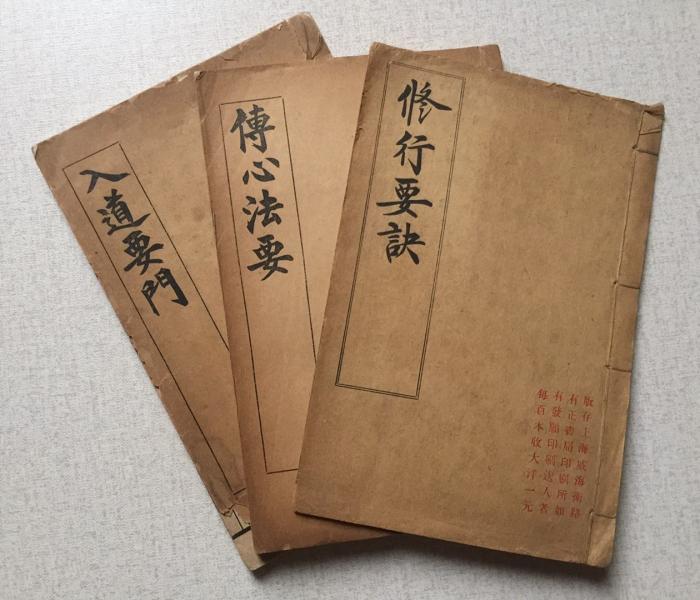 修行要訣
版存上海威海衛路
有正書局印刷所如
有發願印刷送人者
每百本收大洋一元
傳心法要
入道要門